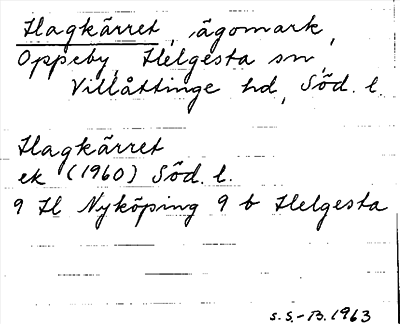 Hagkärret, ägomark,
Oppeby, Helgesta sn,
Villåttinge hd, Söd. l.
Hagkärret
ek (1960) Söd. l.
9 H Nyköping 9 b Helgesta
S.S.-B. 1963